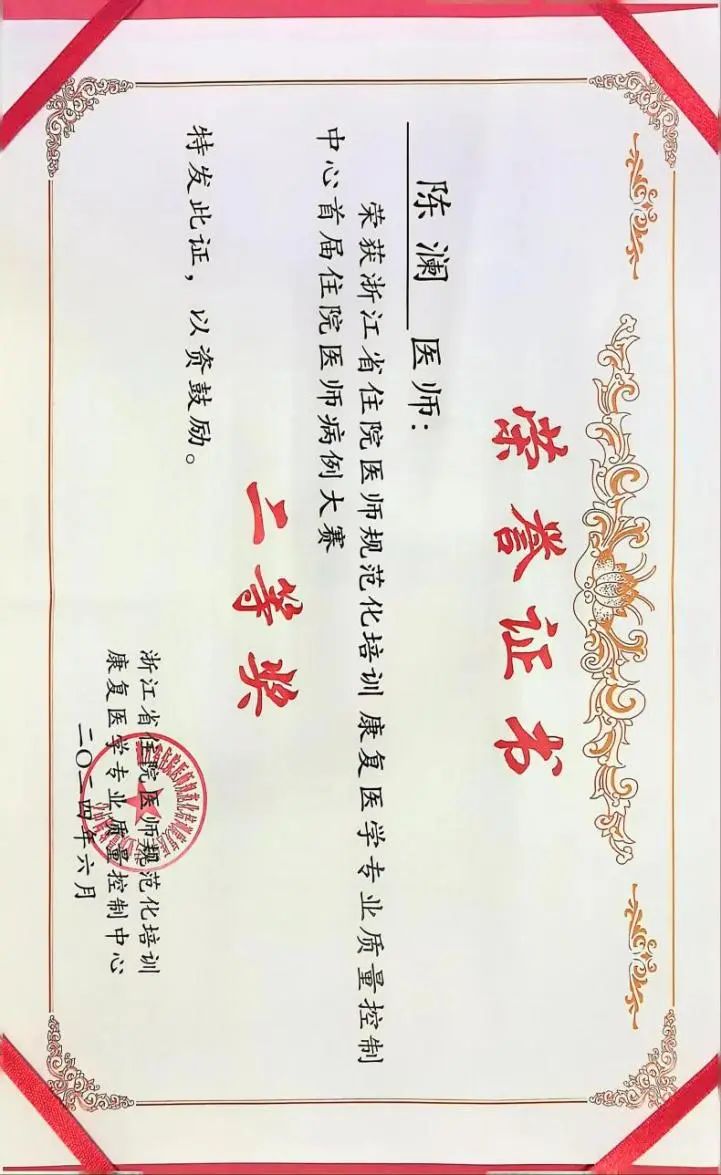 荣誉证书
陈澜 医师：
荣获浙江省住院医师规范化培训康复医学专业质量控制
中心首届住院医师病例大赛
二等奖
特发此证，以资鼓励。
浙江省住院医师规范化培训
康复医学专业质量控制中心
二〇二四年六月